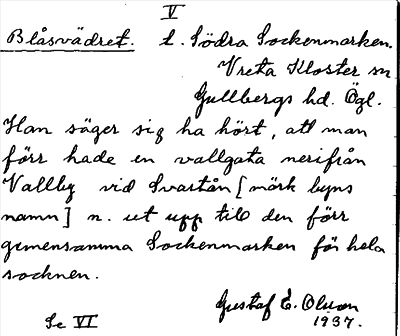 V
Blåsvädret. t. Södra Sockenmarken.
Vreta Kloster sn
Gullbergs hd. Ögl.
Han säger sig ha hört, att man
förr hade en vallgata nerifrån
Vallby vid Svartån [märk byns
namn] n. ut upp till den förr
gemensamma Sockenmarken för hela
socknen.
Se VI
Gustaf E. Olsson
1937.